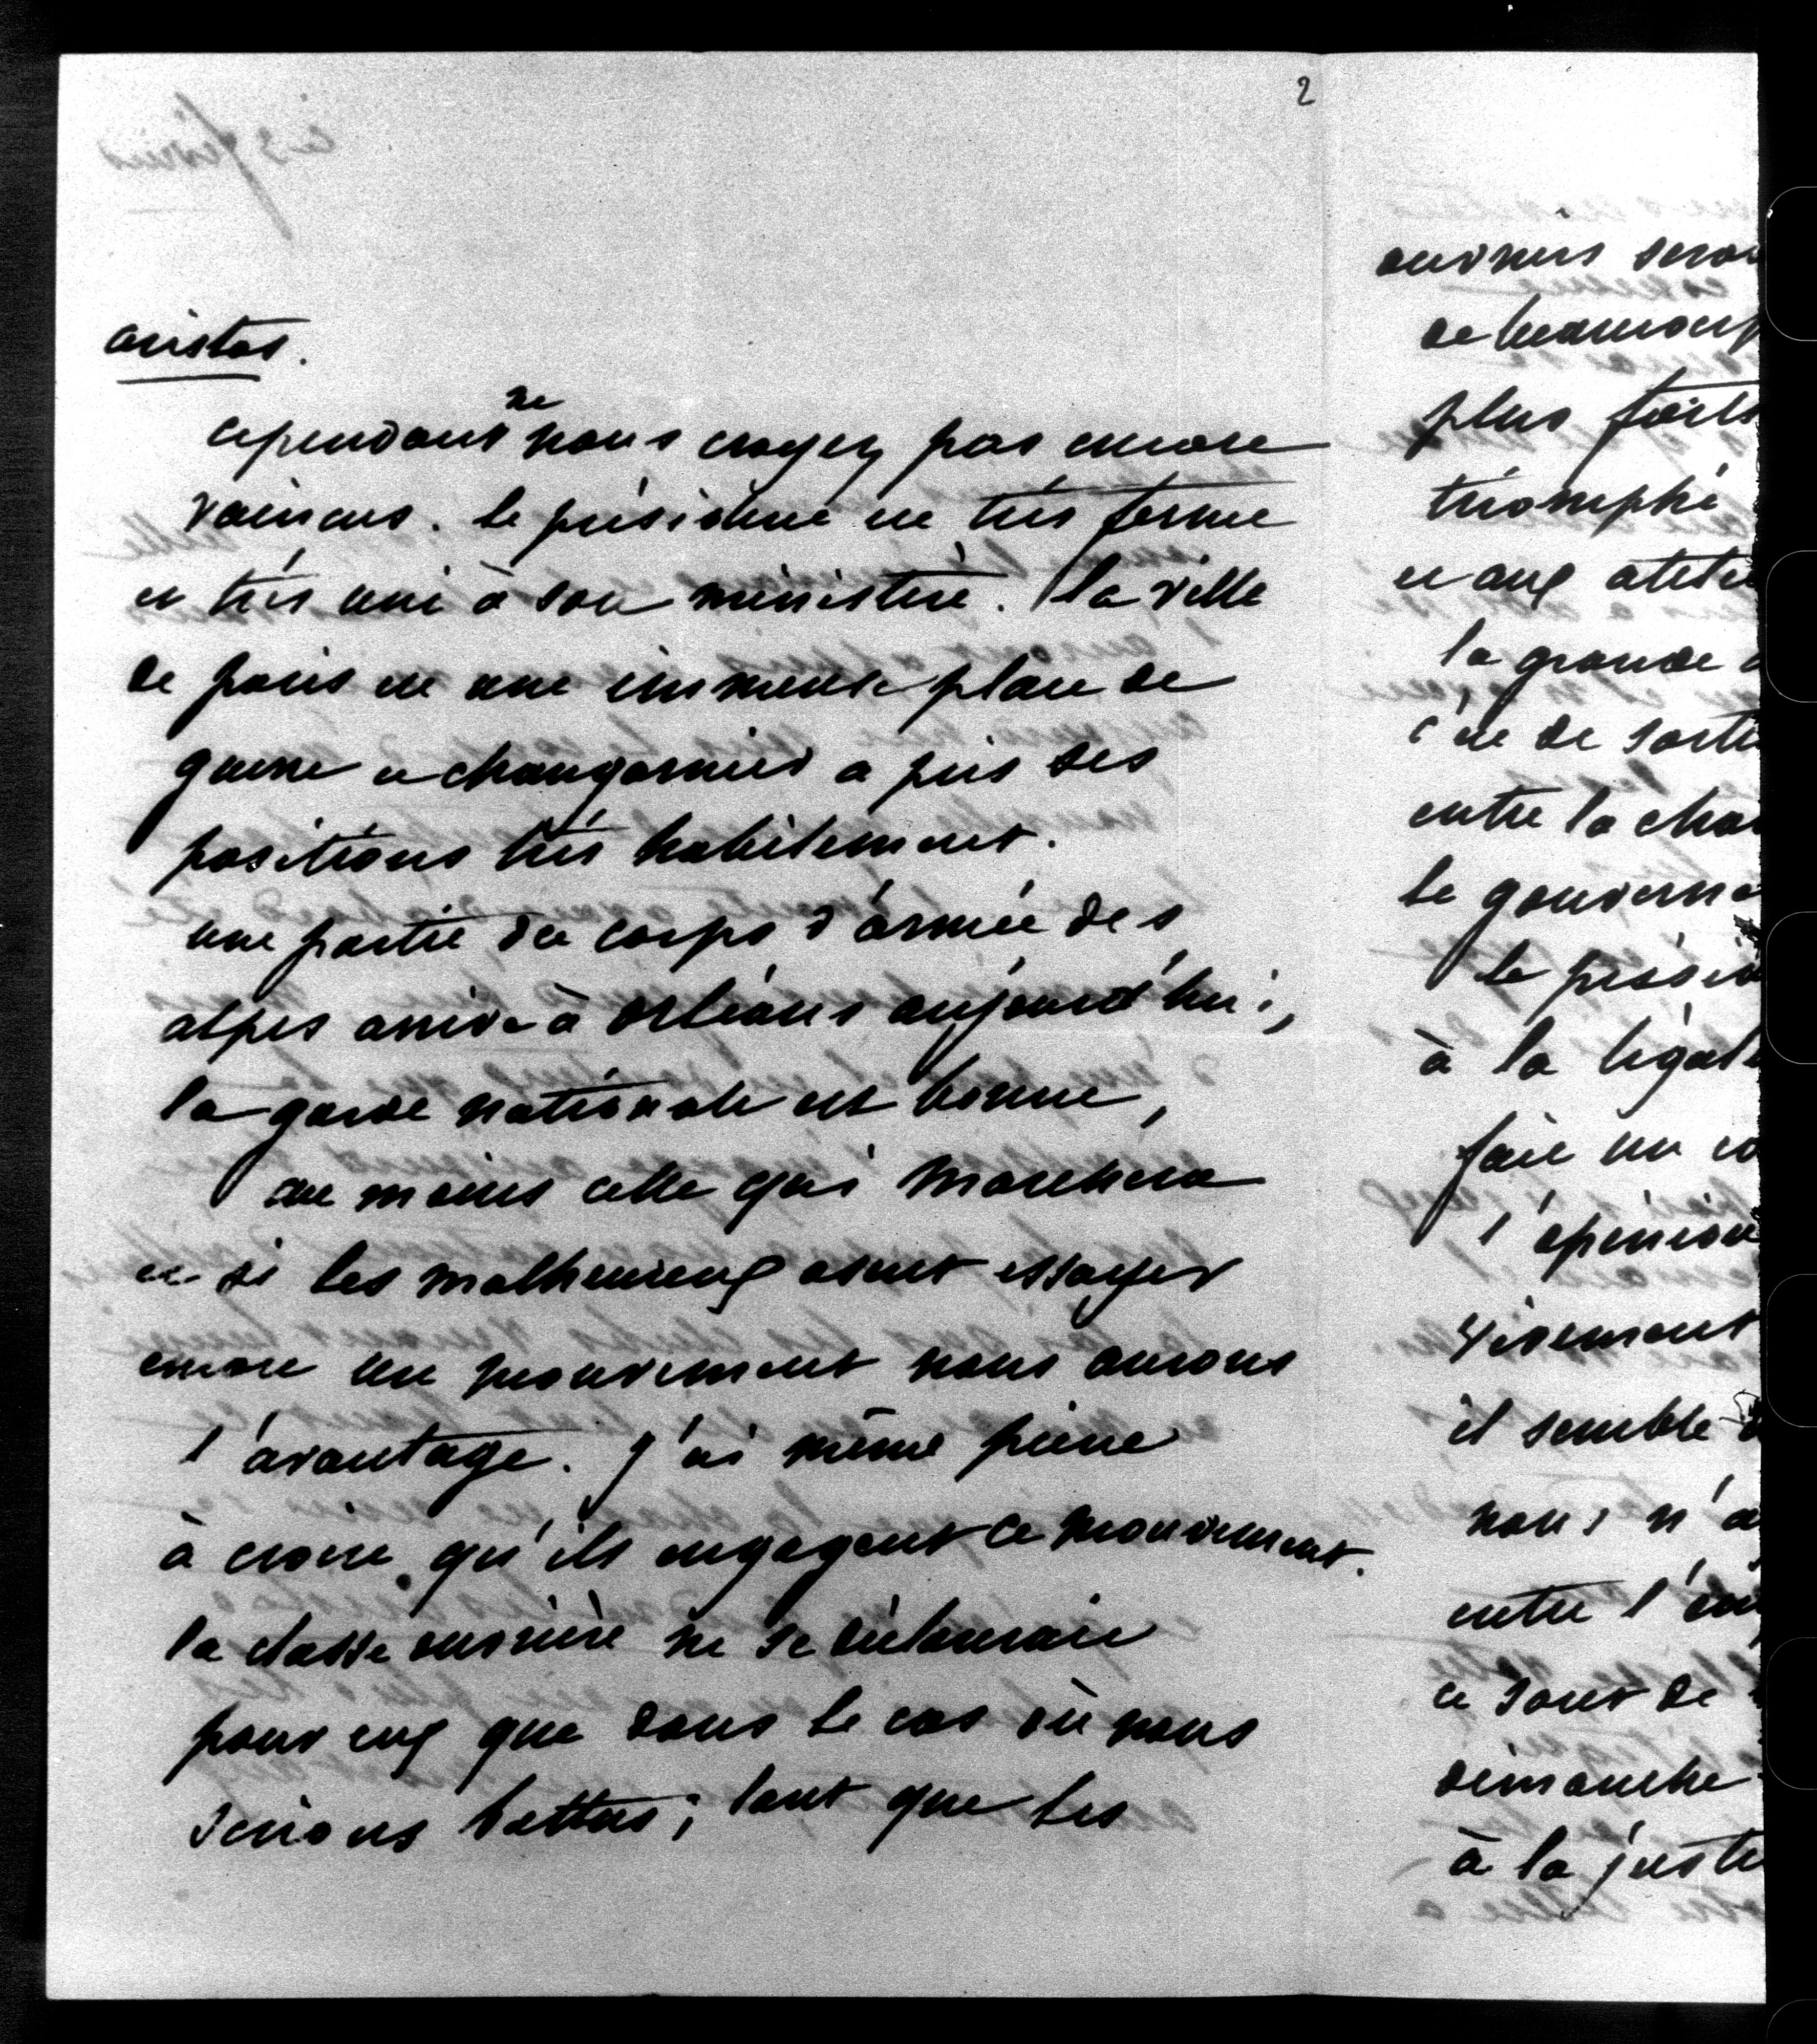 2
aristos.
cependant ne nous croyez pas encore
vaincus. le président est très ferme
et très uni à son ministère. la ville
de paris est une immense place de
guerre et changarnier a pris ses
positions très habilement.
une partie du corps d'armée des
alpes arrive à orléans aujourd'hui,
la garde nationale est bonne,
au moins celle qui marchera
et si les malheureux osent essayer
encore un mouvement nous aurons
l'avantage. j'ai même peine
à croire qu'ils engagent ce mouvement.
la classe ouvrière ne se déclarerait
pour eux que dans le cas où nous
serions battus; tant que les
ouvriers sero
de beaucoup
plus forts
triomphé
et aux atel
la grande
c'est de sort
entre la cha
le gouverne
le présid
à la légal
faire un co
l'opinion
vivement
il semble
nous n'a
entre l'em
ce sont de
dimanche
à la juste